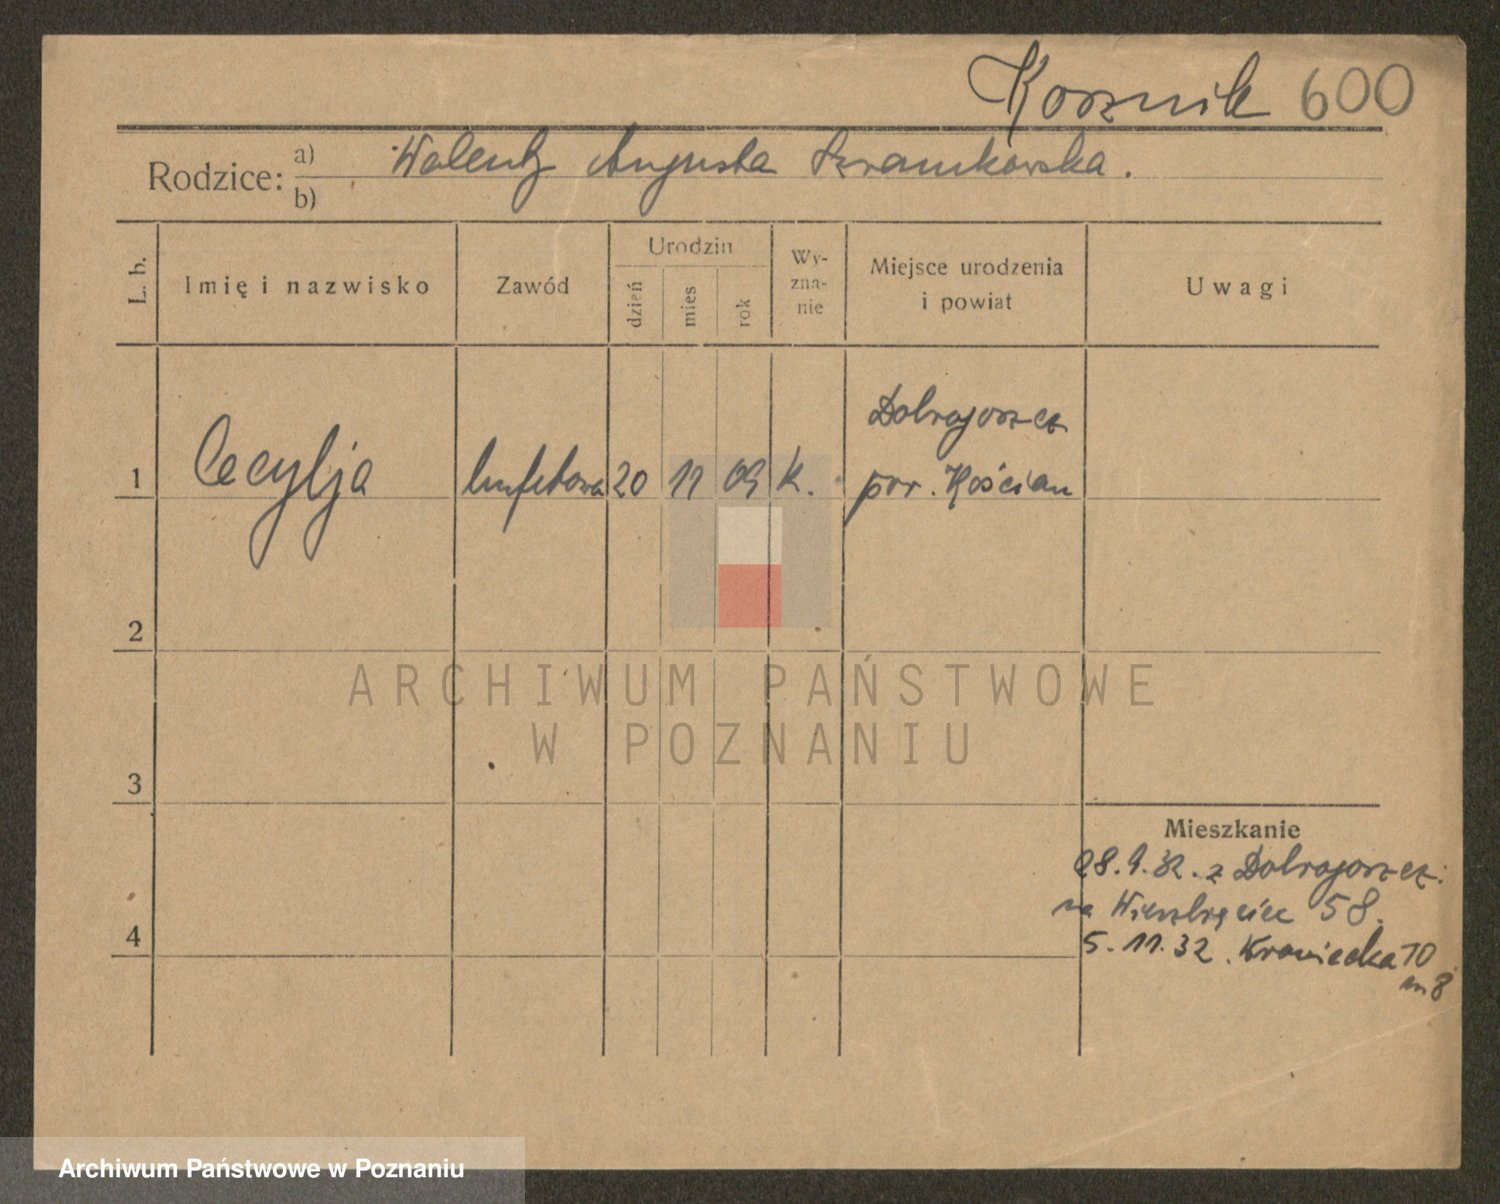 Kosznik 600
Rodzice: a) Walenty Augusta
b)
L. b.
Imię i nazwisko
Zawód
Urodzin
dzień
mies
rok
Wy-
zna-
nie
Miejsce urodzenia
i powiat
Uwagi
1 Cecylja bufetowa 20 11 09 k.
Dobrogoszcz
pow. Kościan
2
3
4
Mieszkanie
28.9.32. z Dobrogoszcz.
na Wierzbięcice 58.
5.11.32. Krawiecka 10
m 8
ARCHIWUM PAŃSTWOWE
W POZNANIU
Archiwum Państwowe w Poznaniu